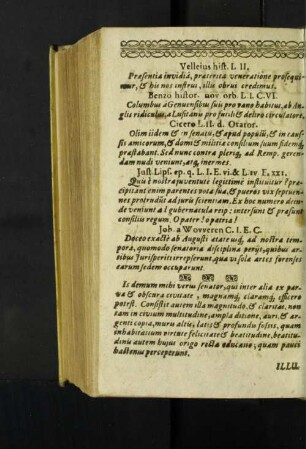 Velleius hist. L II,
Præsentia invidiâ, præterita veneratione prosequi-
mur, & his nos instrui, illis obrui credimus.
Benzo histor. nov. orb. L. I. C. VI.
Columbus à Genuensibus suis pro vano habitus, ab An-
glis ridiculus, à Lusitanis pro futili & deliro circulatore,
Cicero L. II. d. Orator.
Olim iidem & in senatu, & apud populū, & in caus-
sis amicorum, & domi & militia consilium suum fidemq́,
præstabant. Sed nunc contra pleriq, ad Remp. geren-
dam nudi veniunt, atq, inermes.
Just. Lips. ep. q. L. I. E. vi. & L. xv E. xxi.
Quis è nostra juventute legitimè instituitur? præ-
cipitant enim parentes vota sua, & pueros vix septuen-
nes protrudūt ad juris scientiam. Ex hoc numero dein-
de veniunt al gubernacula reip: intersunt & præsunt
consilijs regum. O pater! ô patria!
Joh. a Wovveren C. I. E. C.
Doceo exactè ab Augusti ætate usq, ad nostra tem-
pora, quomodo senatoria disciplina pergit, quibus ar-
tibus Jurisperiti irrepserunt, qua vi sola artes forenses
earum sedem occuparunt.
Is demum mihi verus senator, qui inter alia ex par-
va & obscura civitate, magnamq́, claramq́, efficere
potest. Consistit autem illa magnitudo, & claritas, non
tam in civium multitudine, ampla ditione, auri, & ar-
genti copia, muris altis, latis & profundis fossis, quam
inhabitantium virtute felicitate & beatitudine, beatitu-
dinis autem hujus origo recta educatio, quam pauci
hactenus perceperunt.
ILLU.